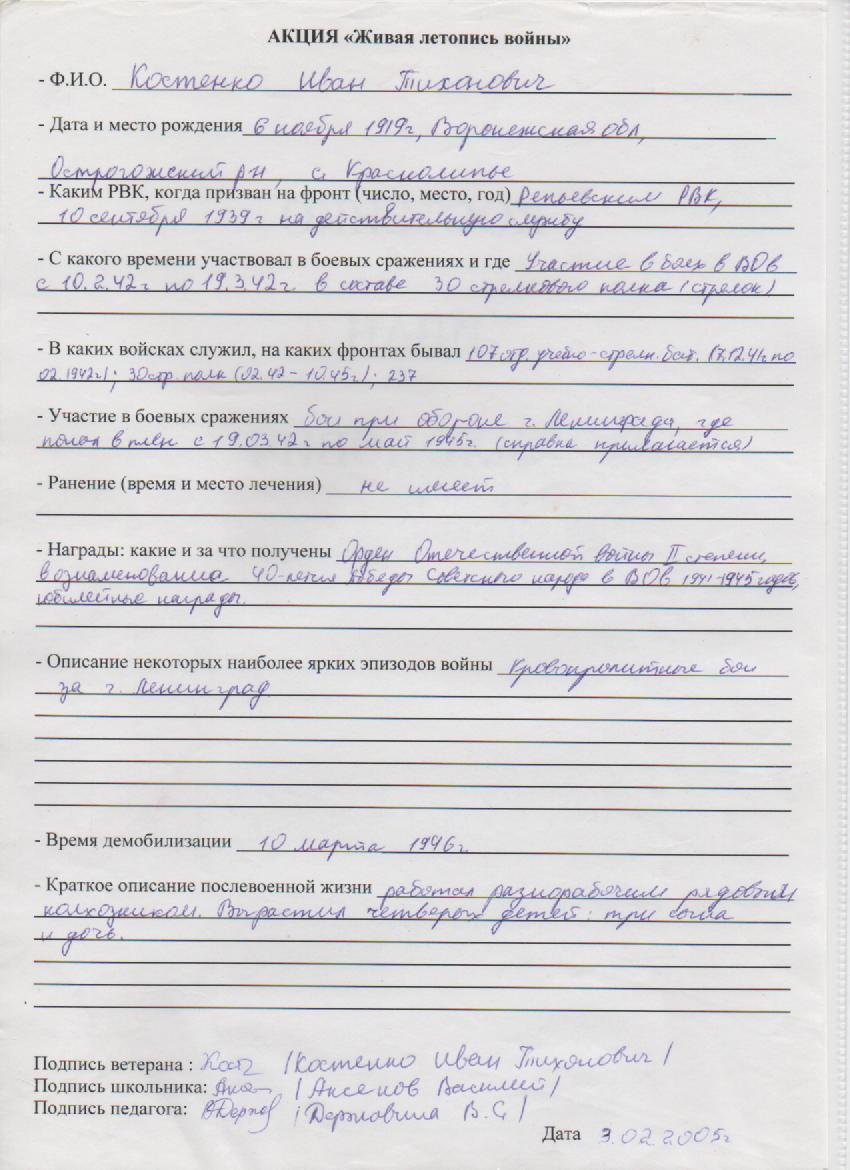 АКЦИЯ «Живая летопись войны»
- Ф.И.О. Костенко Иван Тихонович
- Дата и место рождения 6 ноября 1919г, Воронежская обл,
Острогожский р-н, с. Краснолипье
- Каким РВК, когда призван на фронт (число, место, год) Репьевским РВК,
10 сентября 1939 г на действительную службу
- С какого времени участвовал в боевых сражениях и где Участие в боях в ВОв
с 10.2.42г по 19.3.42г. в составе 30 стрелкового полка (стрелок)
- В каких войсках служил, на каких фронтах бывал 107 отд. учебно-стрелк. бат. (7.12.41г по
02.1942г); 30 стр. полк (02.42 - 10.45г); 237
- Участие в боевых сражениях бои при обороне г. Ленинграда, где
попал в плен с 19.03.42г по май 1945г. (справка прилагается)
- Ранение (время и место лечения) не имеет
- Награды: какие и за что получены Орден Отечественной войны II степени,
в ознаменование 40-летия Победы Советского народа в ВОв 1941-1945 годов,
юбилейные награды.
- Описание некоторых наиболее ярких эпизодов войны Кровопролитные бои
за г. Ленинград
- Время демобилизации 10 марта 1946г.
- Краткое описание послевоенной жизни работал разнорабочим рядовым
колхозником. Вырастил четверых детей: три сына
и дочь.
Подпись ветерана : Кост /Костенко Иван Тихонович/
Подпись школьника: /Аксенов Василий/
Подпись педагога: /Державина В.С./
Дата 3.02.2005г